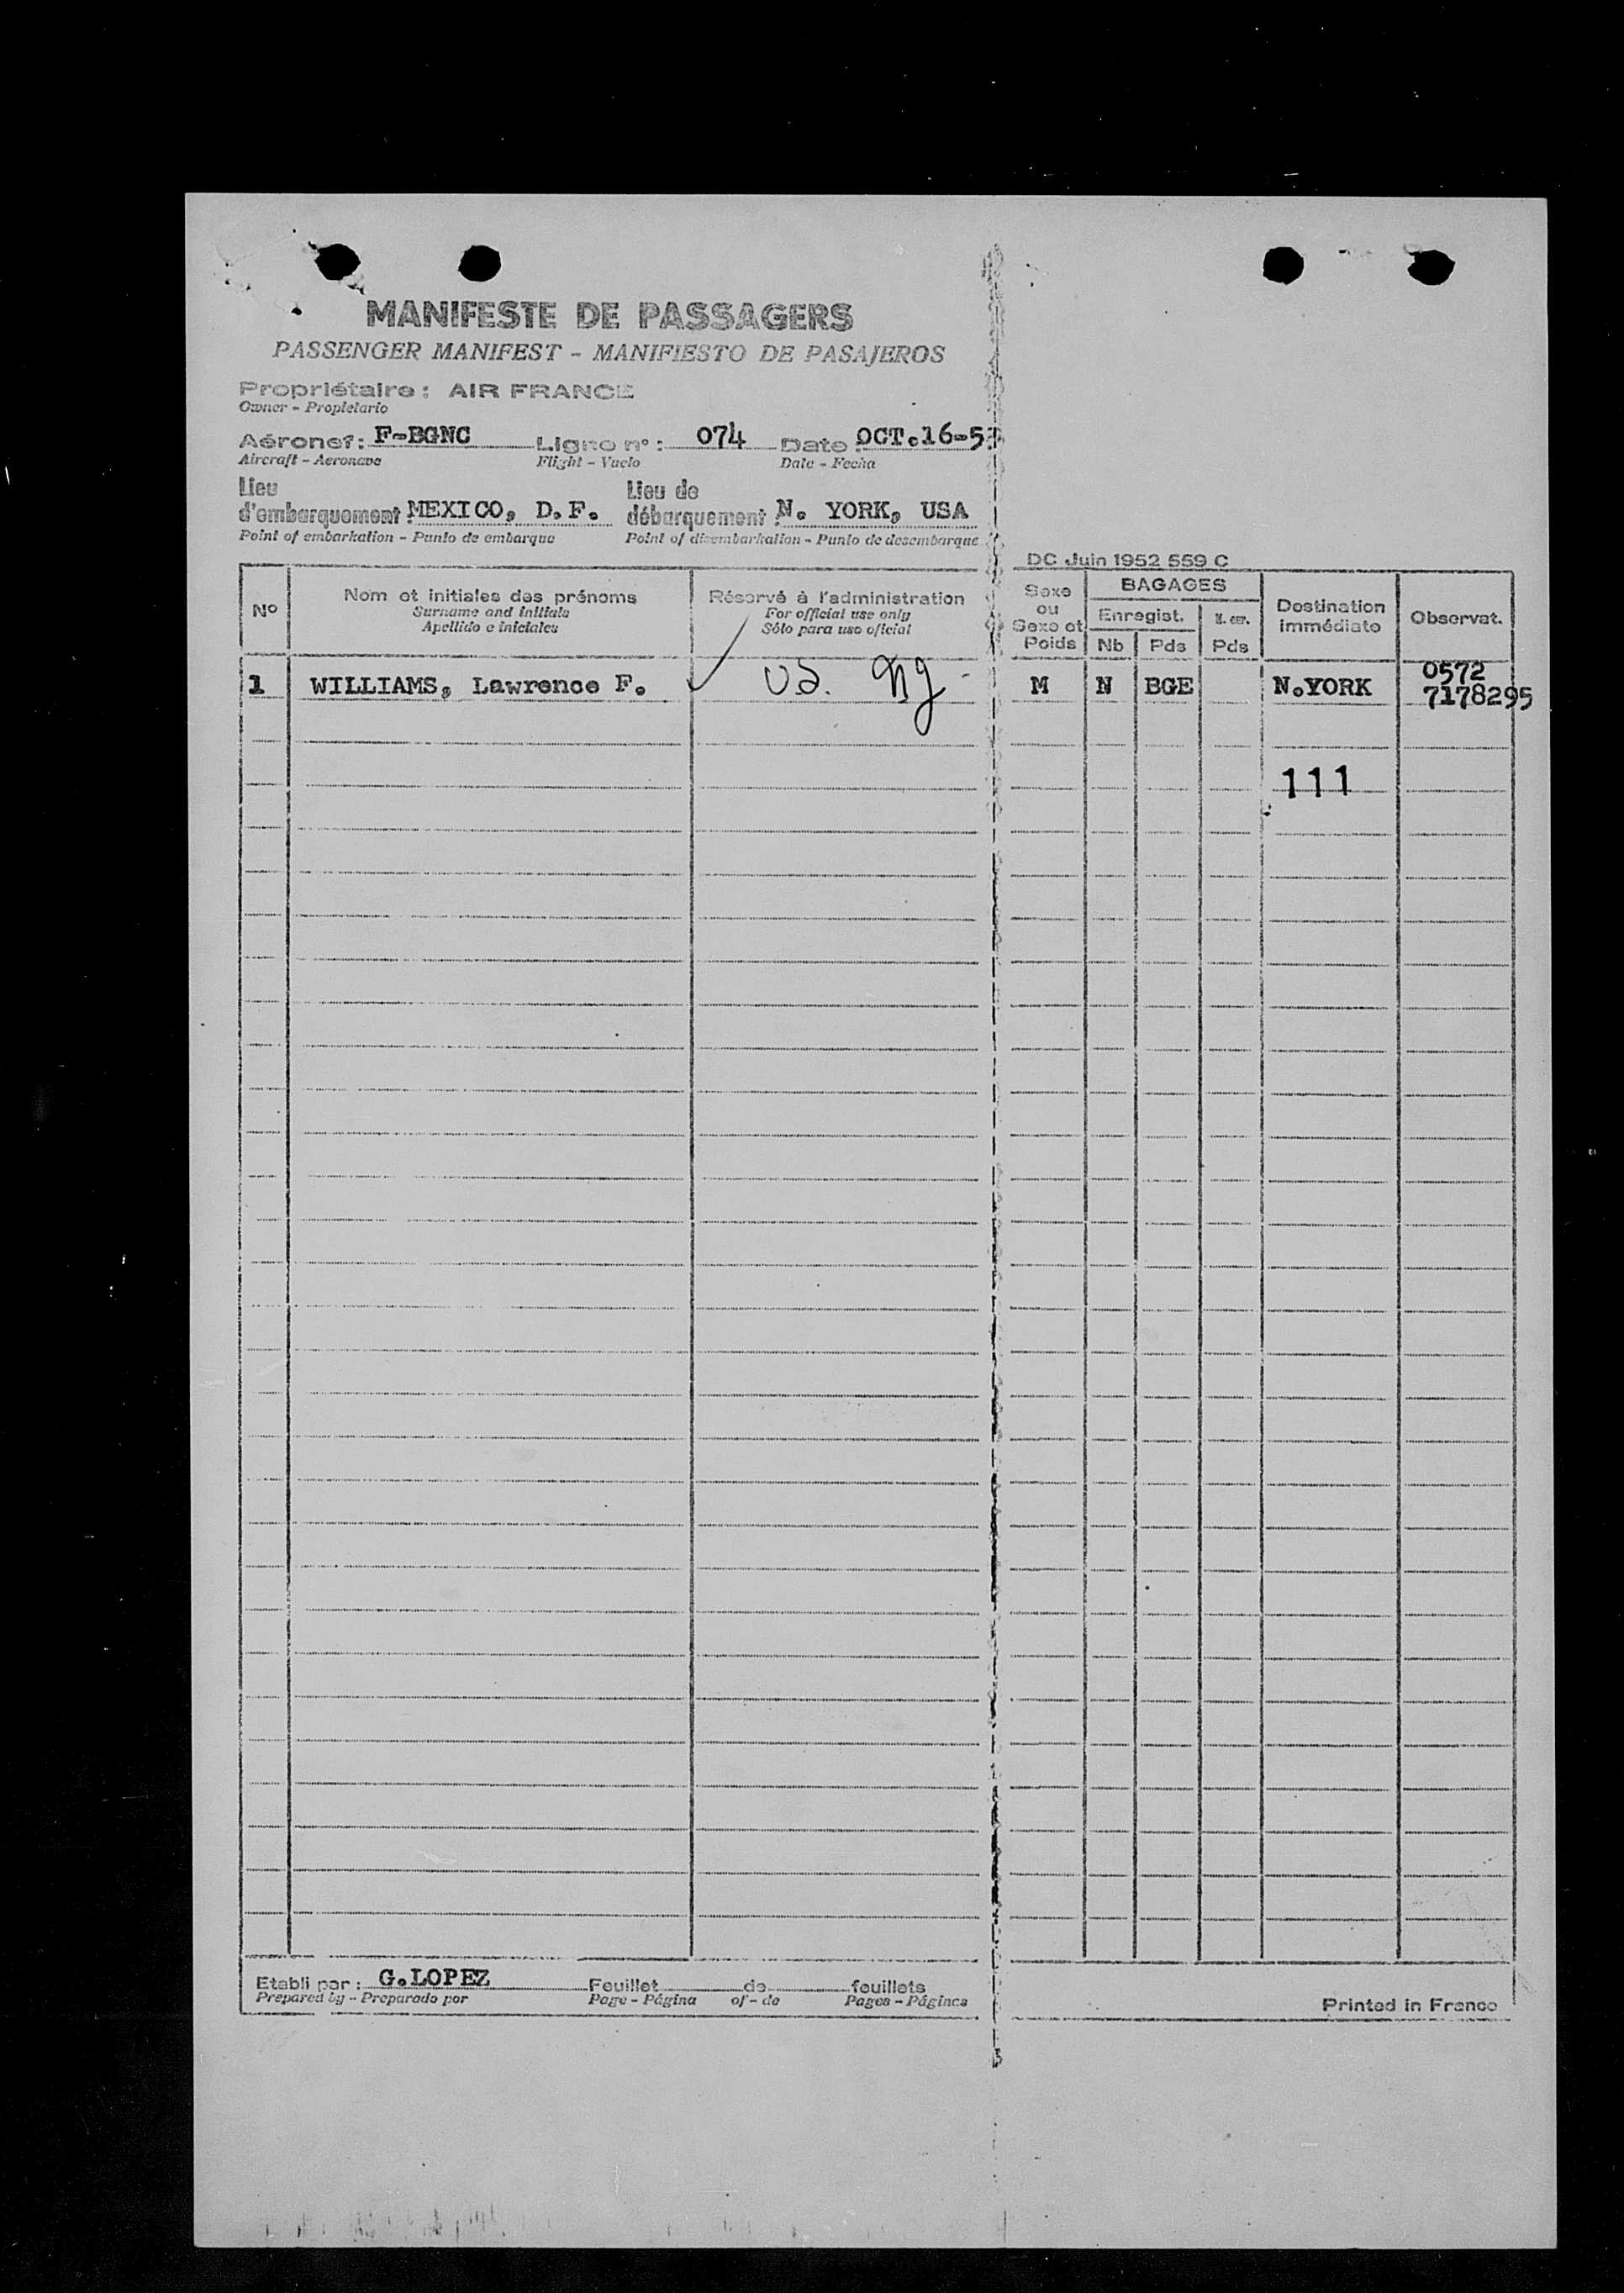 MANIFESTE DE PASSAGERS
PASSENGER MANIFEST - MANIFIESTO DE PASAJEROS
Propriétaire : AIR FRANCE
Owner - Propietario
Aéronef : F-BGNC Ligne n° : 074 Date : OCT.16-53
Aircraft - Aeronave Flight - Vuelo Date - Fecha
Lieu d'embarquement : MEXICO, D.F. Lieu de débarquement : N. YORK, USA
Point of embarkation - Punto de embarque Point of disembarkation - Punto de desembarque
DC Juin 1952 559 C
N° Nom et initiales des prénoms Réservé à l'administration Sexe ou Sexe et Poids BAGAGES Destination immédiate Observat.
Surname and initials For official use only Enregist.
Apellido e iniciales Sólo para uso oficial Nb Pds Pds
0572
1 WILLIAMS, Lawrence F. M N BGE N.YORK 7178295
111
Etabli par : G.LOPEZ Feuillet de feuillets
Prepared by - Preparado por Page - Página of - de Pages - Páginas
Printed in France